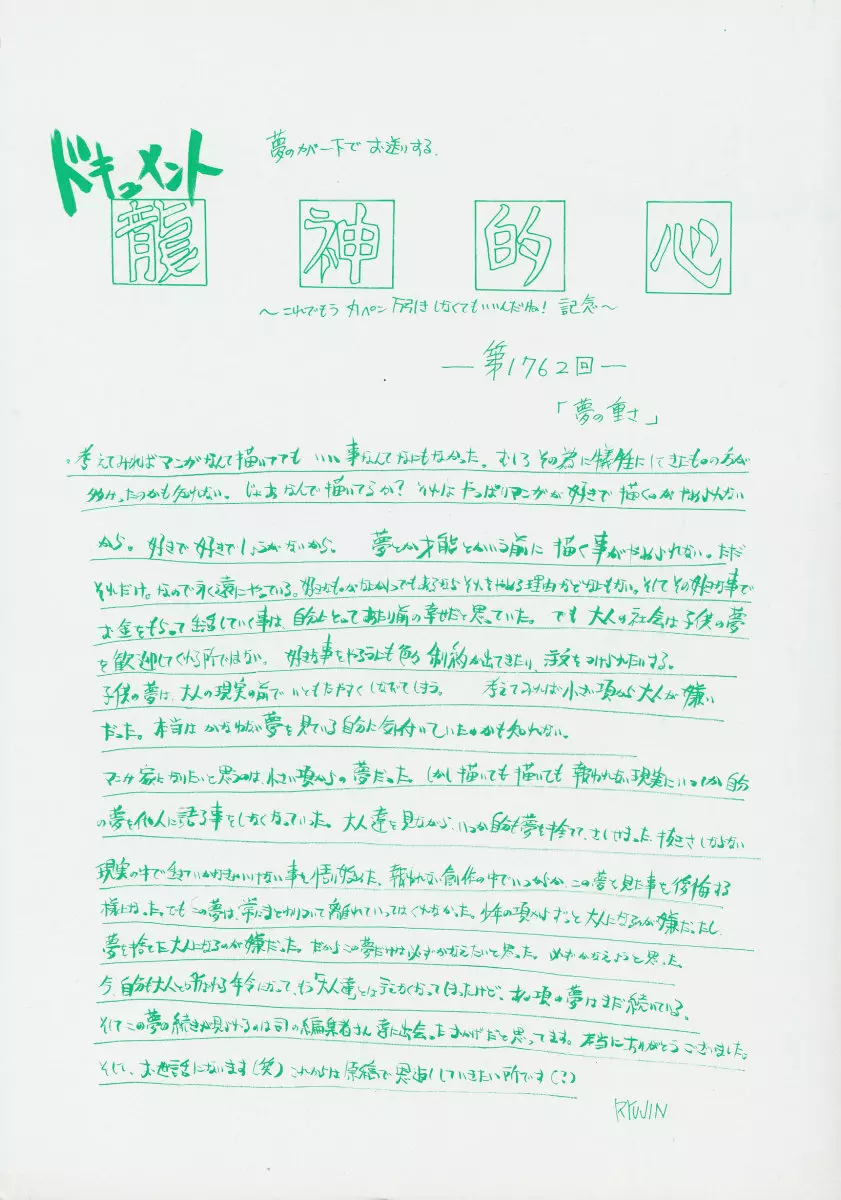 ドキュメント
夢のカバー下でお送りする.
龍神的心
〜これでもうカラペン下引きしなくてもいいんだね！記念〜
—第1762回—
「夢の重さ」
。考えてみればマンガなんて描いてても いい事なんてなにもなかった。むしろその為に犠牲にしてきたものの方が
多かったのかも知れない。じゃあなんで描いてるか？それはやっぱりマンガが好きで描くのがやめられない
から。好きで好きでしょうがないから。 夢とか才能とかいう前に 描く事がやめられない。ただ
それだけ。なので永遠にやっている。好きなものがなにかひとつでもあるならそれをやめる理由などなにもない。そしてその好きな事で
お金をもらって生活していく事は、自分にとってあたり前の幸せだと思っていた。でも 大人の社会は子供の夢
を歓迎してくれる所ではない。 好きな事をやるにも色々制約が出てきたり、注文をつけられたりする。
子供の夢は、大人の現実の前でいともたやすくしなびてしまう。 考えてみれば小さい頃から大人が嫌い
だった。本当はかなわない夢を見ている自分に気付いていたのかも知れない。
マンガ家になりたいと思うのは、小さい頃からの夢だった。しかし描いても描いても報われない現実にいつしか自分
の夢を他人に語る事をしなくなっていった。大人達を見ながら、いつか自分も夢を捨て、
現実の中で生きていかなきゃいけない事を悟り始めた、報われない創作の中でいつからか、この夢を見た事を後悔する
様になった。でもこの夢は、常にまとわりついて離れていってはくれなかった。少年の頃からずっと大人になるのが嫌だったし、
夢を捨てた大人になるのが嫌だった。だからこの夢だけは必ずかなえたいと思った。必ずかなえようと思った。
今、自分も大人と呼ばれる年令になって、もう「大人達」とは言えなくなってしまったけど、あの頃の夢はまだ続いている。
そしてこの夢の続きが見られるのは司の編集者さん達に出会ったおかげだと思ってます。本当にありがとうございました。
そして、お世話になります(笑) これからは原稿で恩返ししていきたい所です(?)
RYUJIN